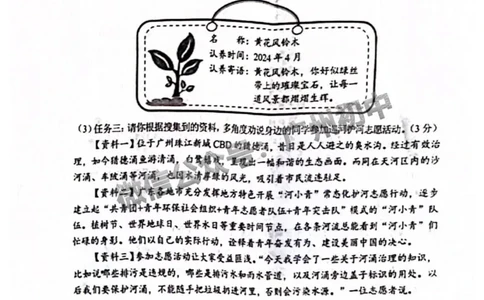 名　　称：黄花风铃木
认养时间：2024年4月
认养寄语：黄花风铃木，你好似绿丝
带上的璀璨宝石，让每一
道风景都熠熠生辉。
(3)任务三：请你根据搜集到的资料，多角度劝说身边的同学参加巡河护河志愿活动。(3分)
【资料一】位于广州珠江新城CBD的猎德涌，昔日是人人避之的臭水沟。经过有效治
理，如今猎德涌鱼游清涌，白鹭嬉戏，呈现出一幅和谐的生态画面。而同在天河区内的沙
河涌、车陂涌等河涌，也因水清岸绿的风光，吸引着市民流连驻足。
【资料二】广东各地市充分发挥地方特色开展“河小青”常态化护河志愿行动，逐步
建立起“共青团+青年环保社会组织+青年志愿者队伍+青年突击队”模式的“河小青”队
伍。植树节、世界地球日、世界水日等重要时间节点，在各条河流总能看到“河小青”们
忙碌的身影。他们以自己的实际行动，诠释着青年奋发有为、建设美丽中国的决心。
【资料三】参加志愿活动让大家受益匪浅。“今天我学会了一些关于河涌治理的知识，
比如说哪些排污是违规的，哪些是排污水和雨水管道，以及河涌旁边盖子标识的用处。以
后我们要保护河涌，不能随手把垃圾扔进河里，否则会污染水源。”一位志愿者说。
微信公众号：广州初中